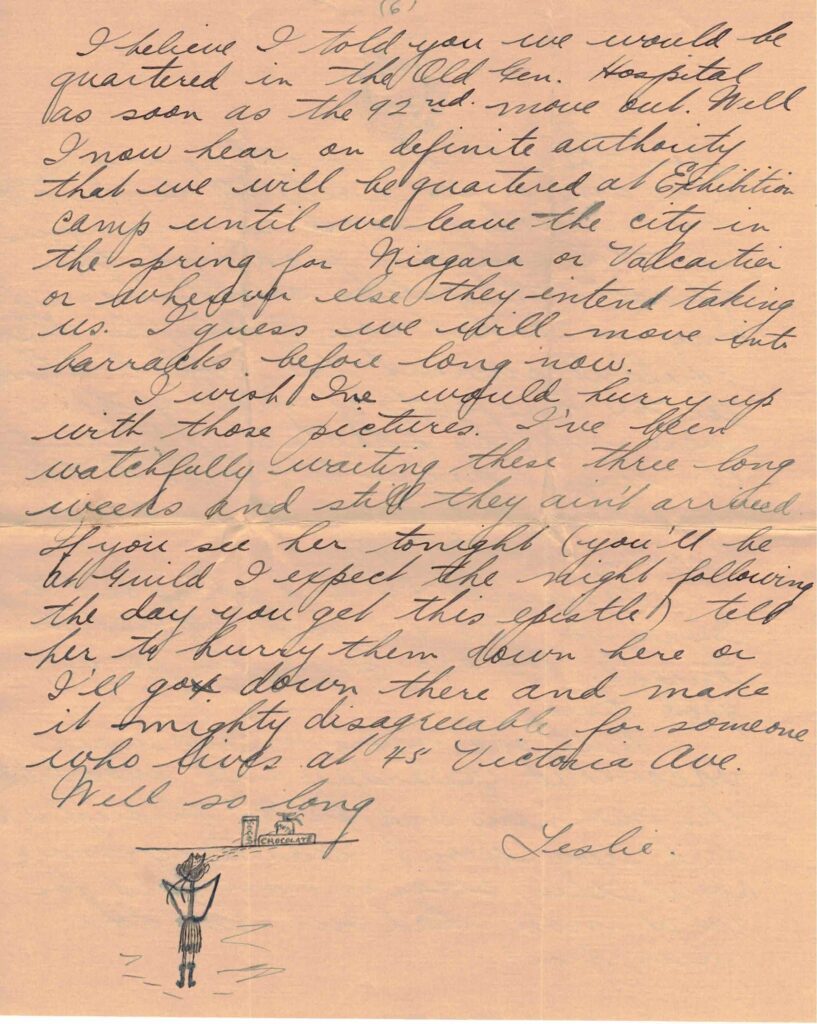 (6)
I believe I told you we would be
quartered in the Old Gen. Hospital
as soon as the 92nd. move out. Well
I now hear on definite authority
that we will be quartered at Exhibition
camp until we leave the city in
the spring for Niagara or Valcartier
or wherever else they intend taking
us. I guess we will move into
barracks before long now.
I wish Ine would hurry up
with those pictures. I've been
watchfully waiting these three long
weeks and still they ain't arrived.
If you see her tonight (you'll be
at Guild I expect the night following
the day you get this epistle) tell
her to hurry them down here or
I'll go down there and make
it mighty disagreeable for someone
who lives at 45 Victoria Ave.
Well so long
CHOCOLATE
Leslie.